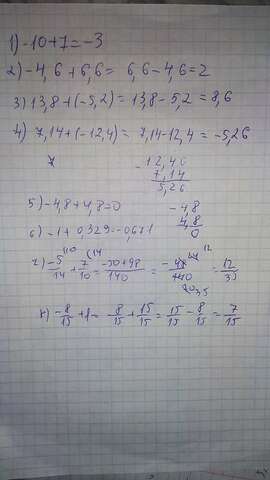 1) -10+7=-3
2) -4,6+6,6= 6,6-4,6=2
3) 13,8+(-5,2)=13,8-5,2=8,6
4) 7,14+(-12,4)= 7,14-12,4=-5,26
- 12,40
7,14
5,26
5) -4,8+4,8=0
- 4,8
4,8
0
6) -1+0,329=-0,671
-5/14 + 7/10 = -50+98/140 = 12/35
-8/15 +1= -8/15 + 15/15 = 15/15 - 8/15 = 7/15